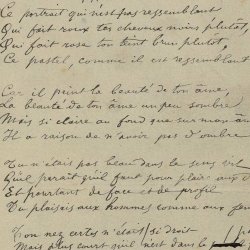 Ce portrait qui n'est pas ressemblant
Qui fait roux tes cheveux noirs plutôt,
Qui fait rose ton teint brun plutôt,
Ce pastel, comme il est ressemblant
Car il peint la beauté de ton âme,
La beauté de ton âme un peu sombre
Mais si claire au fond que sur mon âme
Il a raison de n'avoir pas d'ombre
Tu n'étais pas beau dans le sens vil
Qu'il paraît qu'il faut pour plaire aux
Et pourtant de face et de profil
Tu plaisais aux hommes comme aux
Ton nez certes n'était si droit
Mais plus court qu'il n'est dans le